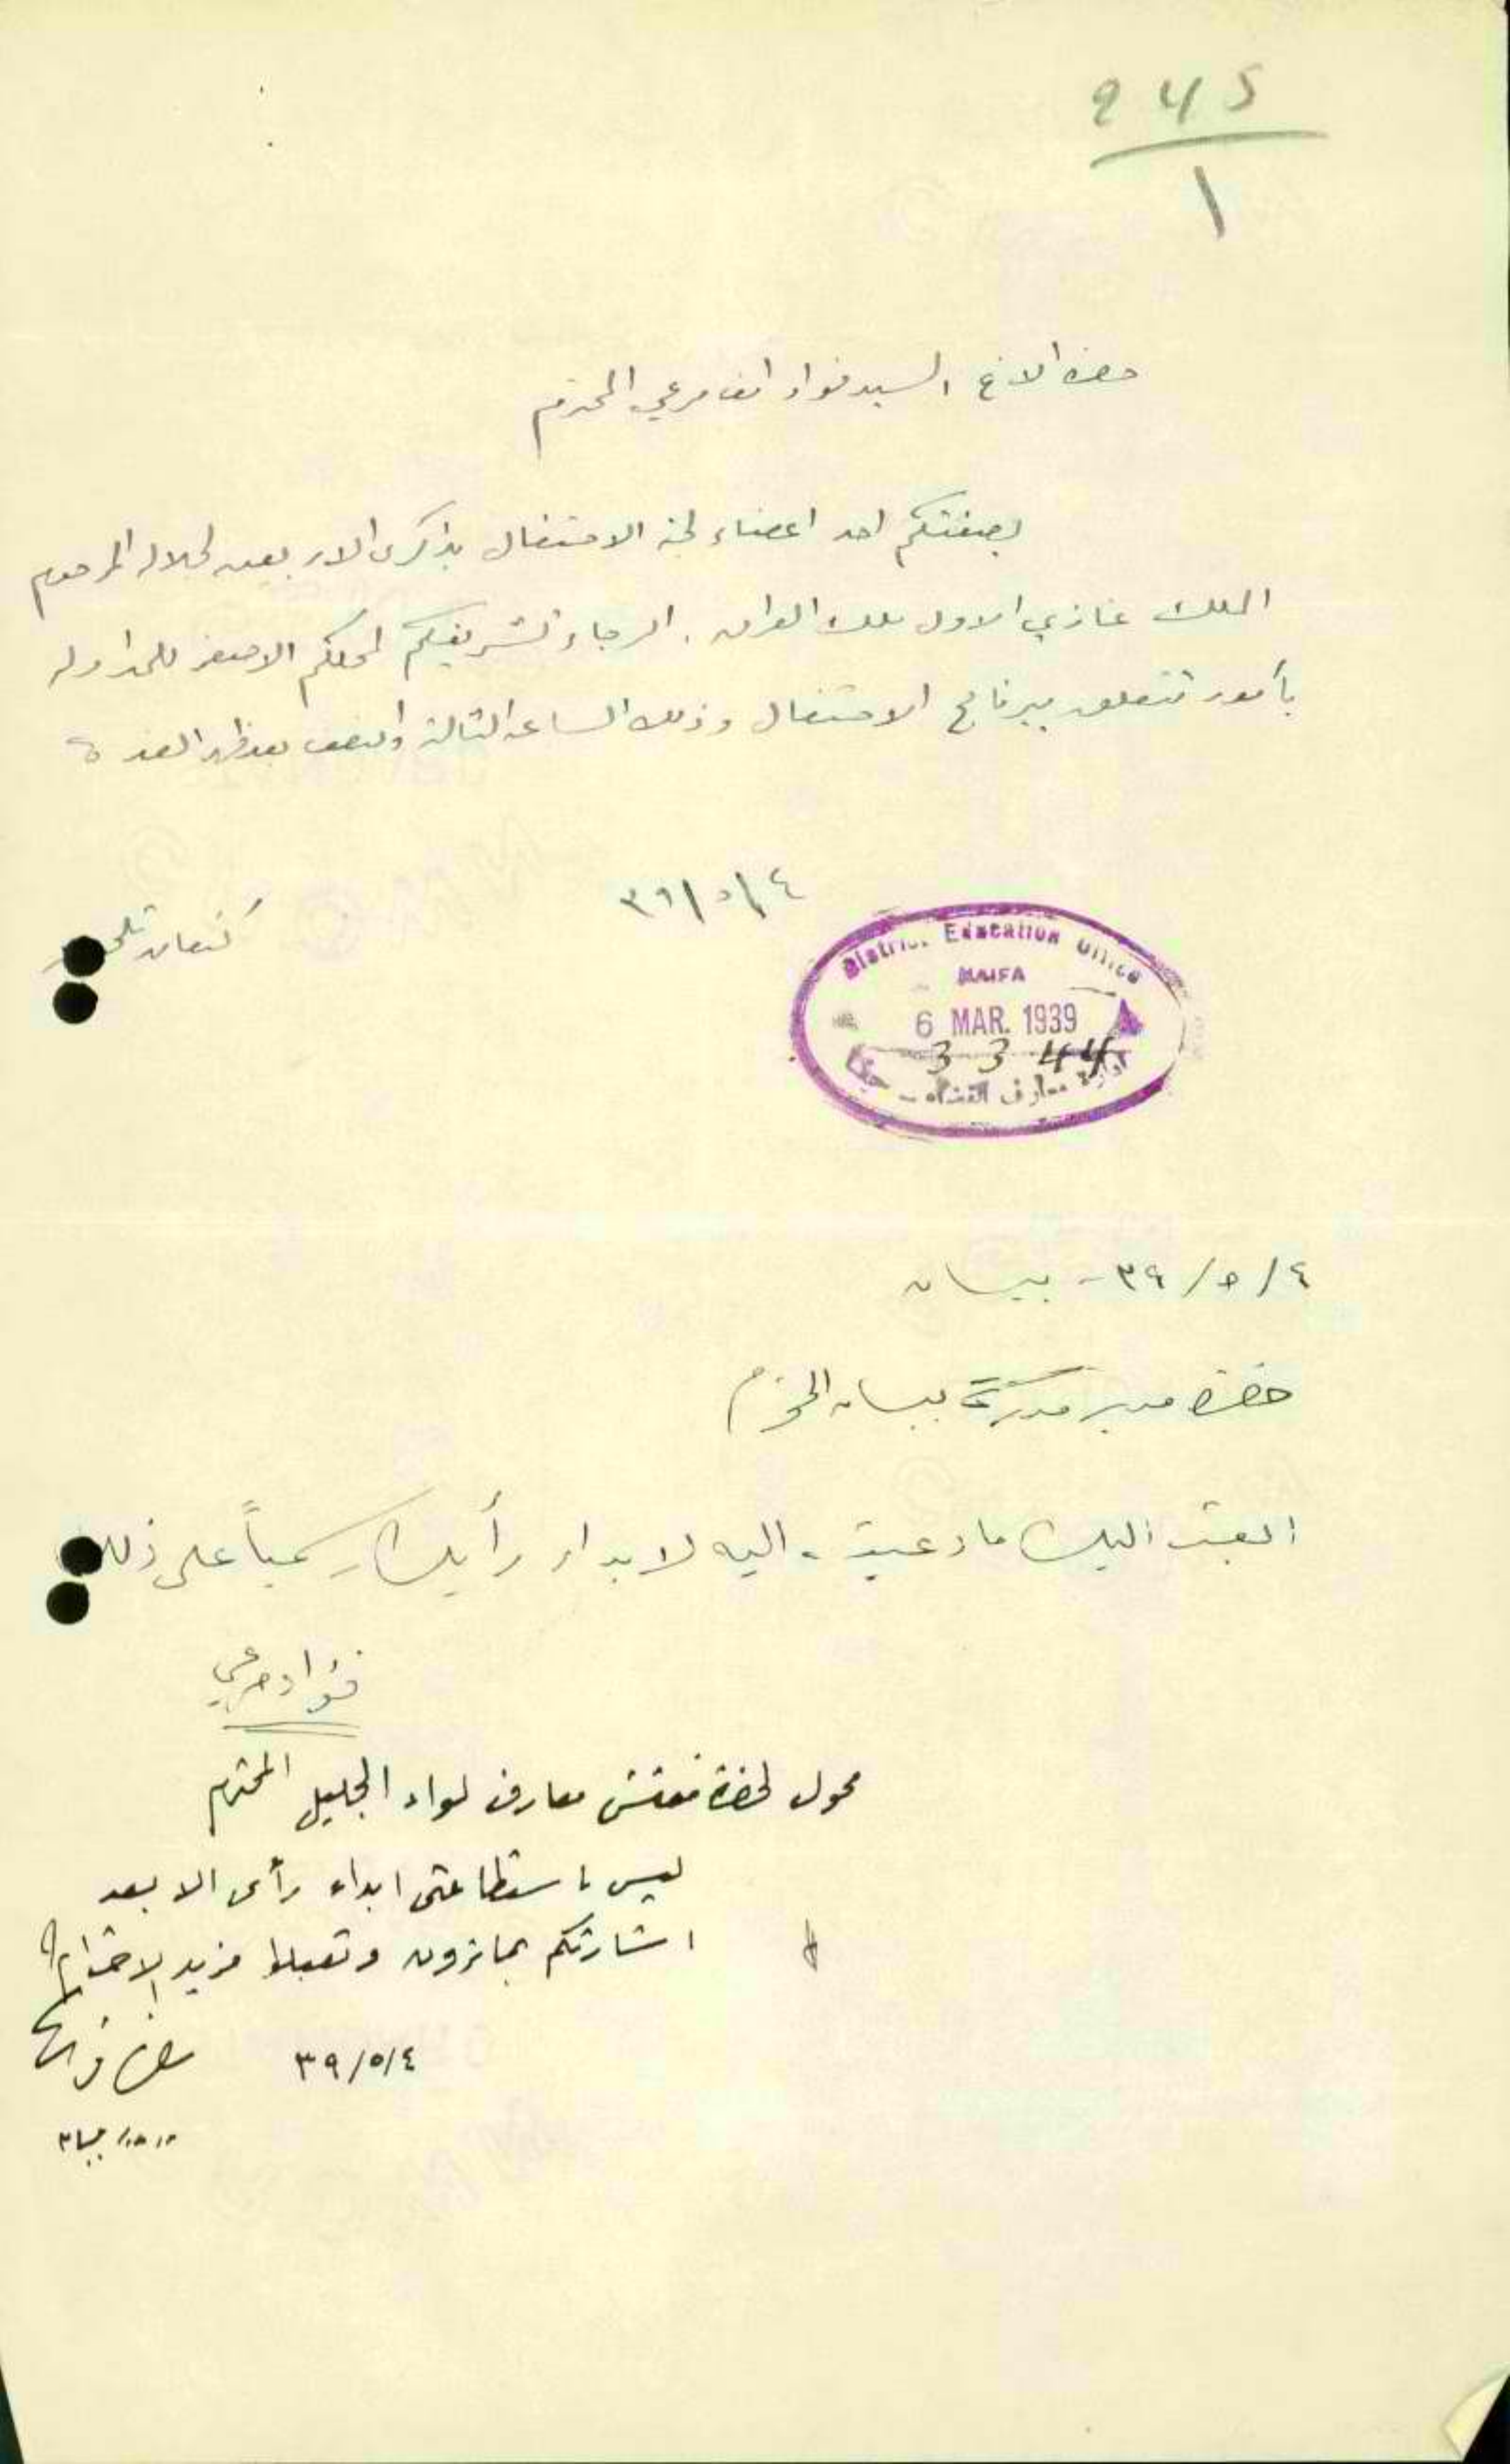 ٩٤٥
١
حضرة الاخ السيد فواد افـ مرعي المحترم
بصفتكم احد اعضاء لجنة الاحتفال بذكرى الاربعين لجلالة المرحوم
الملك غازي الاول ملك العراق . الرجاء تشريفكم لمحلكم الاصغر للمداولة
بأمور تتعلق ببرنامج الاحتفال وذلك الساعة الثالثة والنصف بعد ظهر الغد
٣٩/٥/٤
كنعان
District Education Office
HAIFA
6 MAR. 1939
3344
ادارة معارف القضاء - حيفا
٣٩/٥/٤ - بيسان
حضرة مدير مدرسة بيسان المحترم
ابعث اليك ما دعيت اليه لابداء رأيك رسمياً على ذلك
فؤاد مرعي
محول لحضرة مفتش معارف لواء الجليل المحترم
ليس باستطاعتي ابداء رأى الا بعد
اشارتكم بما ترون وتقبلوا مزيد الاحترام
٣٩/٥/٤